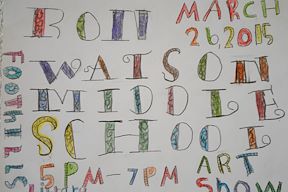 RON
MARCH
26, 2015
WATSON
MIDDLE
SCHOOL
FOOTHILLS
5PM-7PM
ART
SHOW